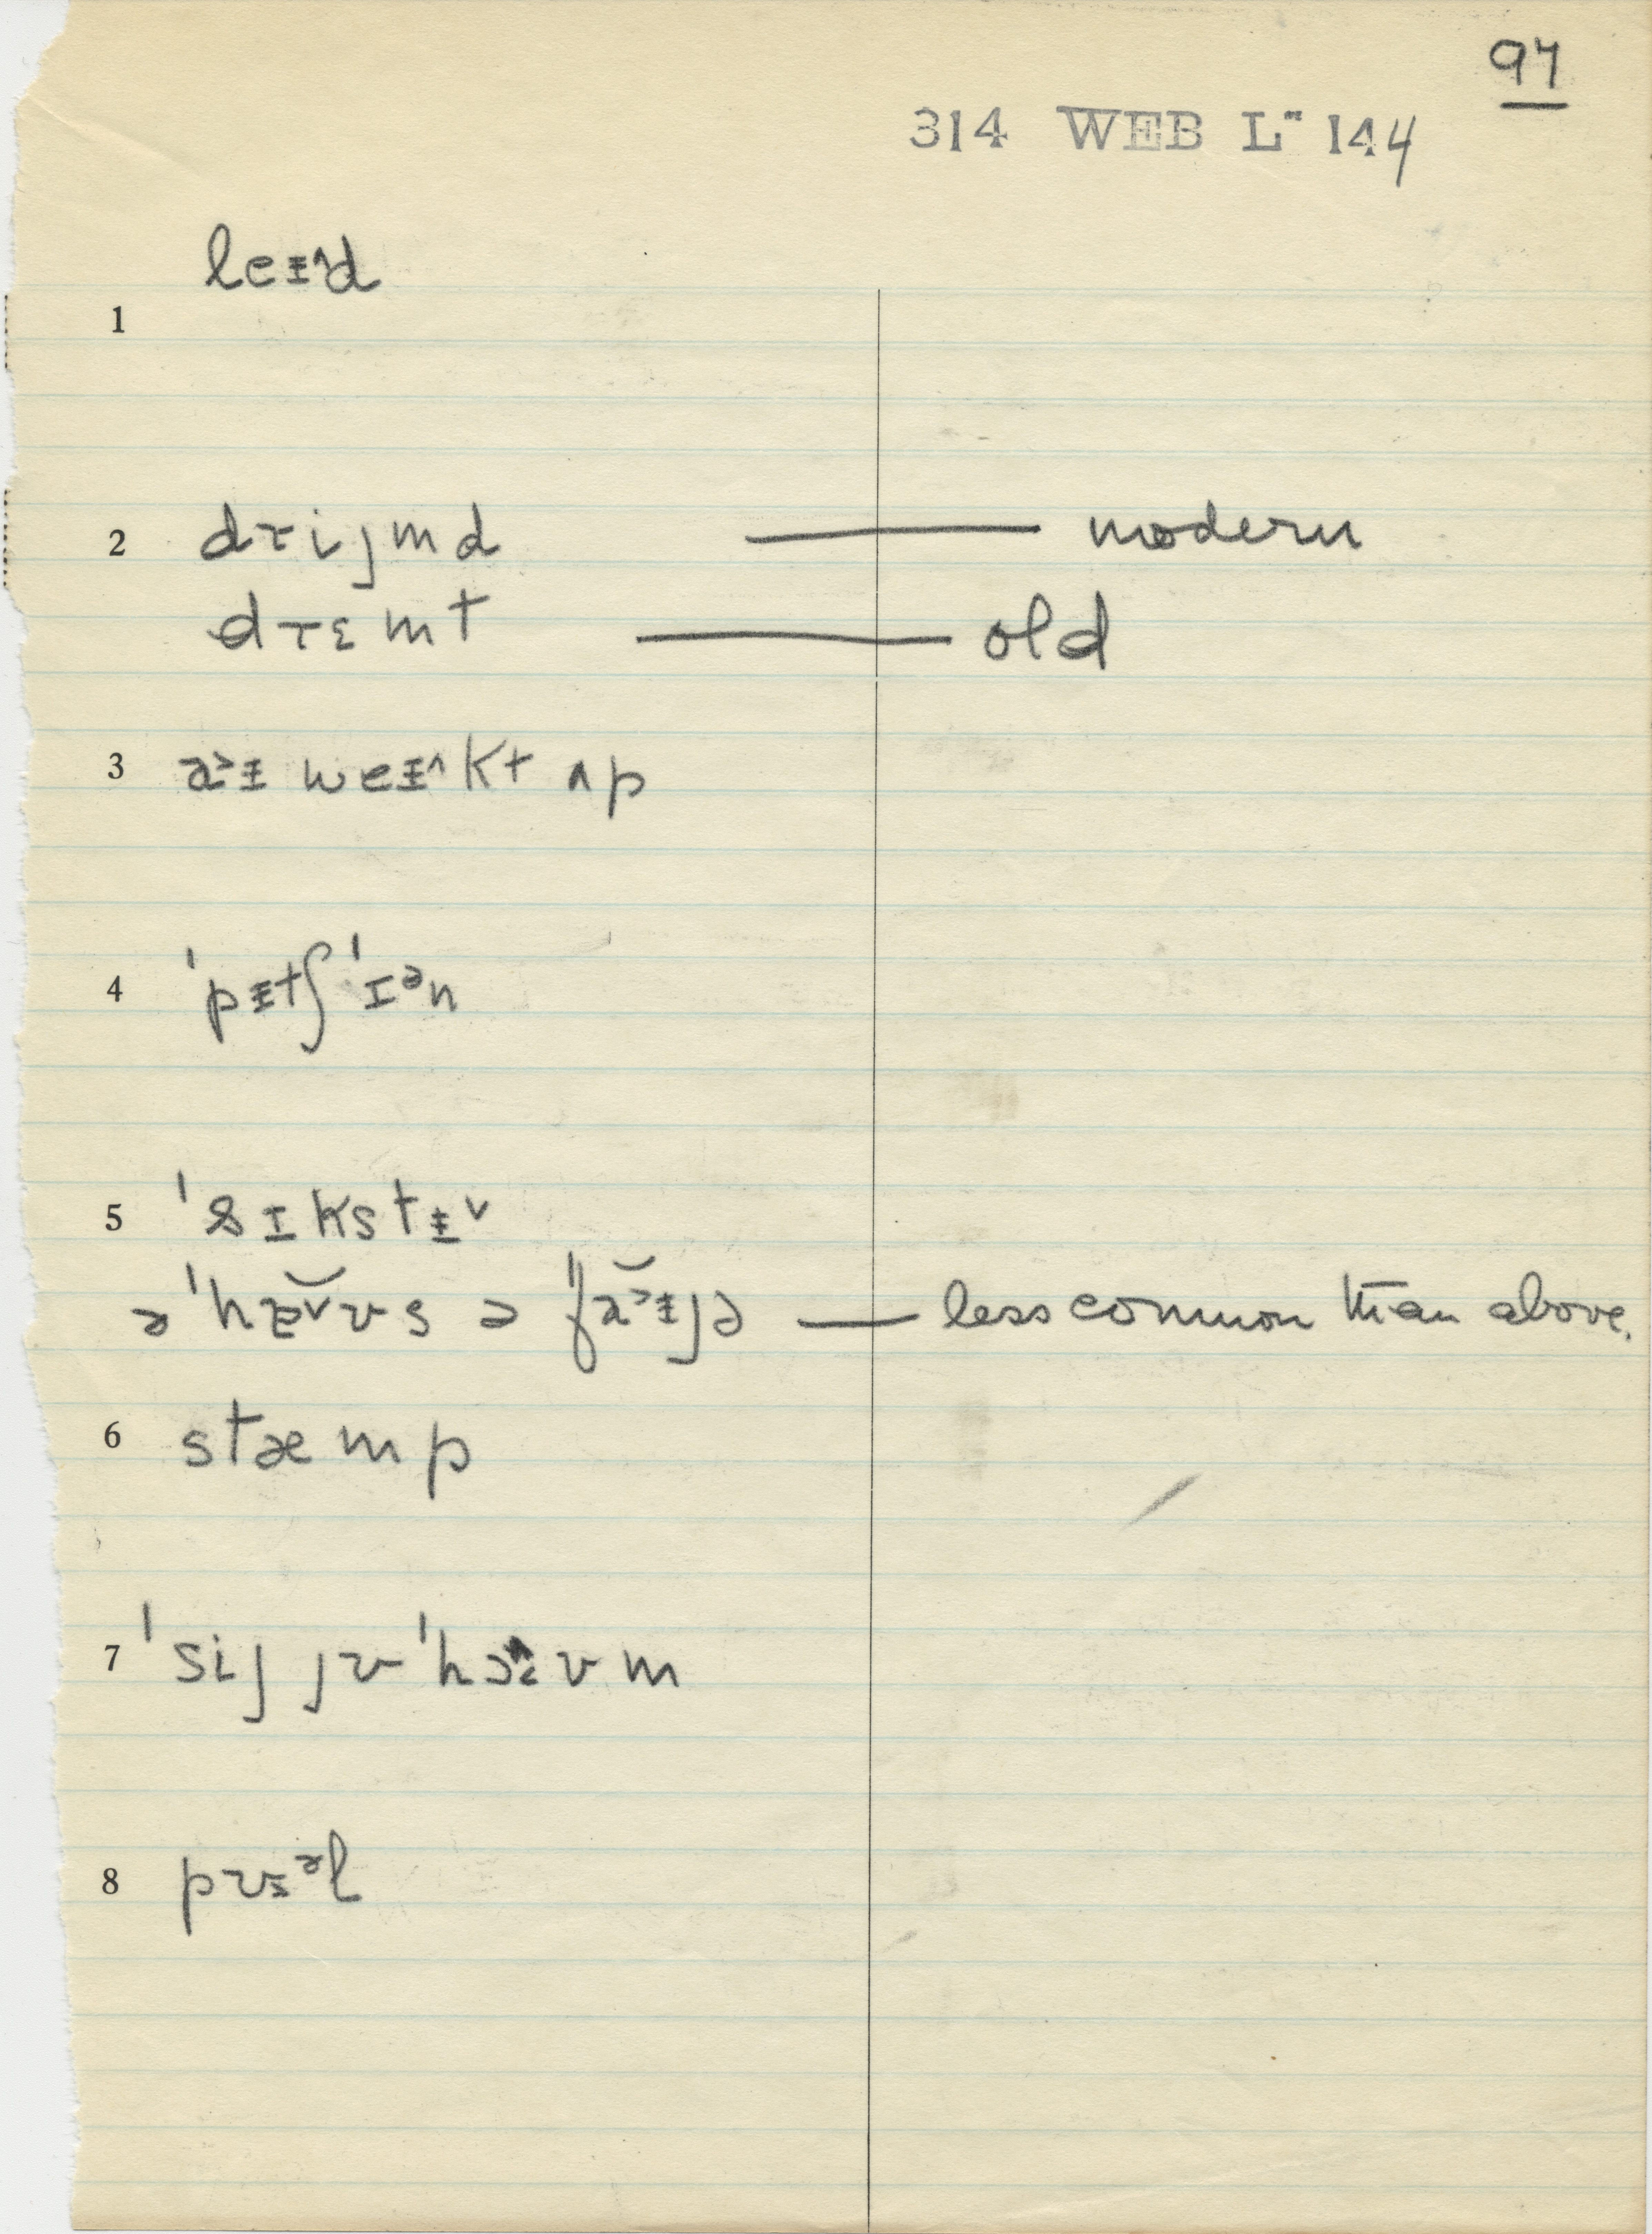 97
314 WEB L⁻ 144
leᵻ˄d
1
2 drijmd — modern
drɛmt — old
3 a˃ᵻ weᵻ˄kt ʌp
4 ˈpᵻtʃ ˈɪᵊn
5 ˈsɪkstᵻ˅
ə ˈhæ̆˅ʊs ə ˈfă˃ᵻjə — less common than above.
6 stæmp
7 ˈsij jʊ ˈhɔʊm
8 pʊsᵊl